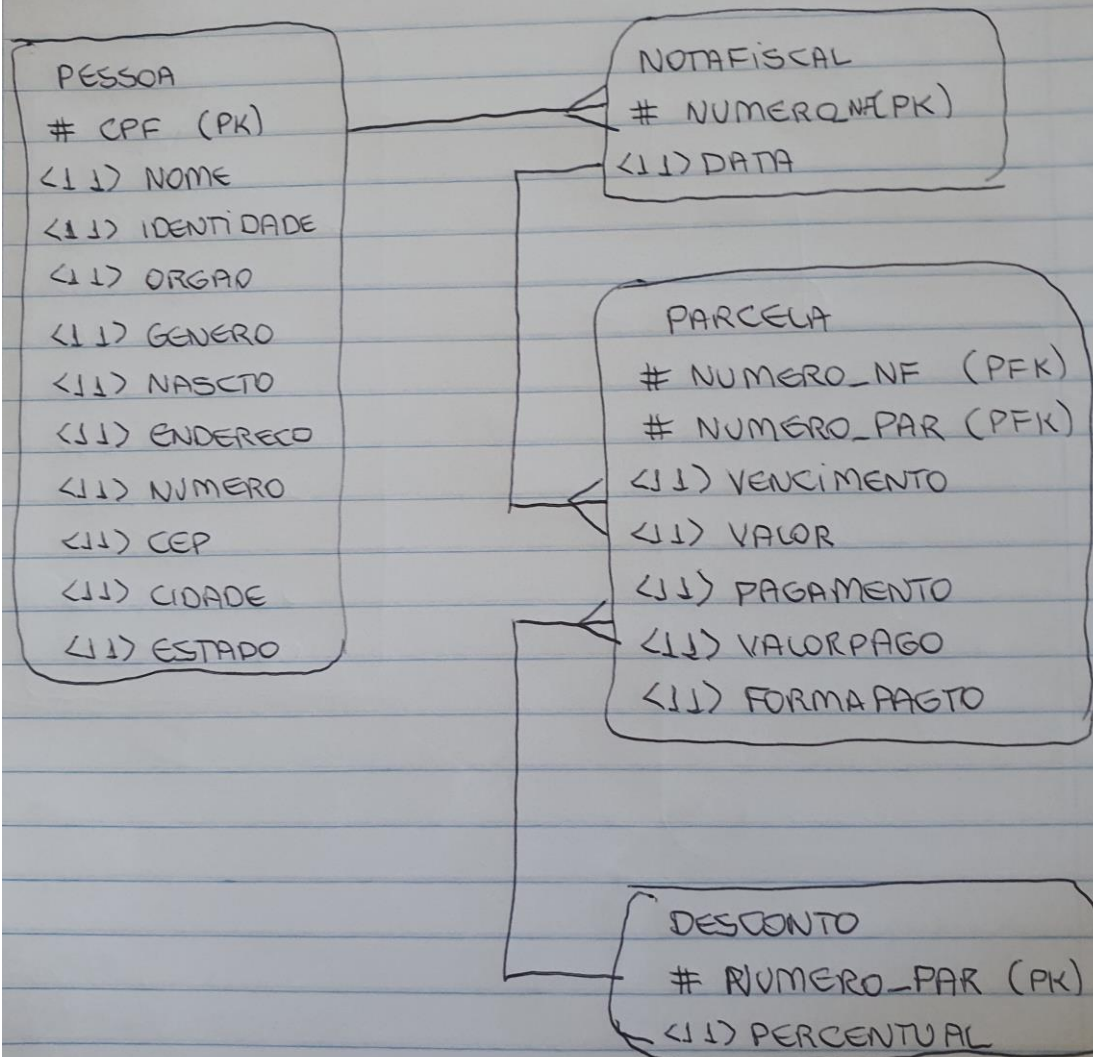 PESSOA
# CPF (PK)
<11> NOME
<11> IDENTIDADE
<11> ORGAO
<11> GENERO
<11> NASCTO
<11> ENDERECO
<11> NUMERO
<11> CEP
<11> CIDADE
<11> ESTADO
NOTAFISCAL
# NUMERO_NF(PK)
<11> DATA
PARCELA
# NUMERO_NF (PFK)
# NUMERO_PAR (PFK)
<11> VENCIMENTO
<11> VALOR
<11> PAGAMENTO
<11> VALORPAGO
<11> FORMAPAGTO
DESCONTO
# NUMERO_PAR (PK)
<11> PERCENTUAL